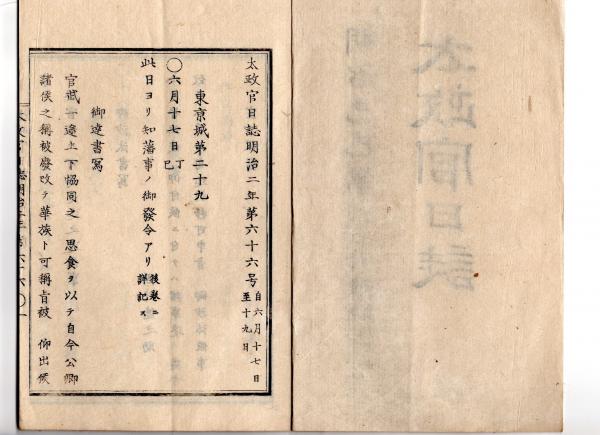 太政官日誌明治二年第六十六号 自六月十七日
至十九日
東京城第二十九
○六月十七日 丁巳
此日ヨリ知藩事ノ御發令アリ 後卷ニ
詳記ス
御達書寫
官武一途上下協同之 思食ヲ以テ自今公卿
諸侯之稱被廢改テ華族ト可稱旨被 仰出候
太政官日誌